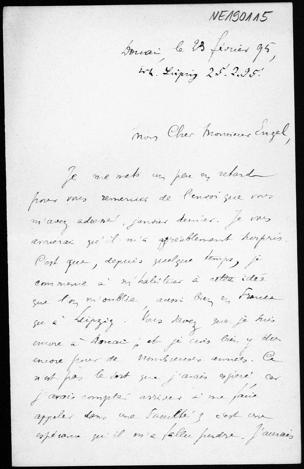 NE190115
Douai, le 23 février 95,
Leipzig 25.2.95.
Mon Cher Monsieur Engel,
Je me mets un peu en retard
pour vous remercier de l'envoi que vous
m'avez adressé janvier dernier. Je vous
avouerai qu'il m'a agréablement surpris.
C'est que, depuis quelque temps, je
commence à m'habituer à cette idée
que l'on m'oublie, aussi bien en France
qu'à Leipzig. Vous savez que je suis
encore à Douai, et je crois bien y être
encore pour de nombreuses années. Ce
n'est pas le sort que j'avais espéré car
j'avais compté arriver à me faire
appeler dans une Faculté ; c'est une
espérance qu'il m'a fallu perdre. J'aurais